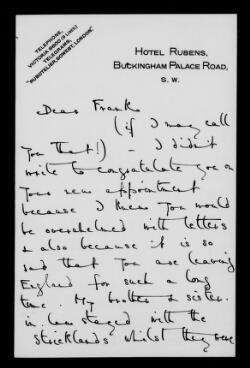 TELEPHONE,
VICTORIA 6600 (6 LINES)
TELEGRAMS,
"RUBOTELIER, SOWEST, LONDON"
HOTEL RUBENS,
BUCKINGHAM PALACE ROAD,
S. W.
Dear Frank
(if I may call
you that!) - I didn't
write to congratulate you on
your new appointment
because I knew you would
be overwhelmed with letters
& also because it is so
sad that you are leaving
England for such a long
time. My brother & sister-
in-law stayed with the
Stricklands whilst they were